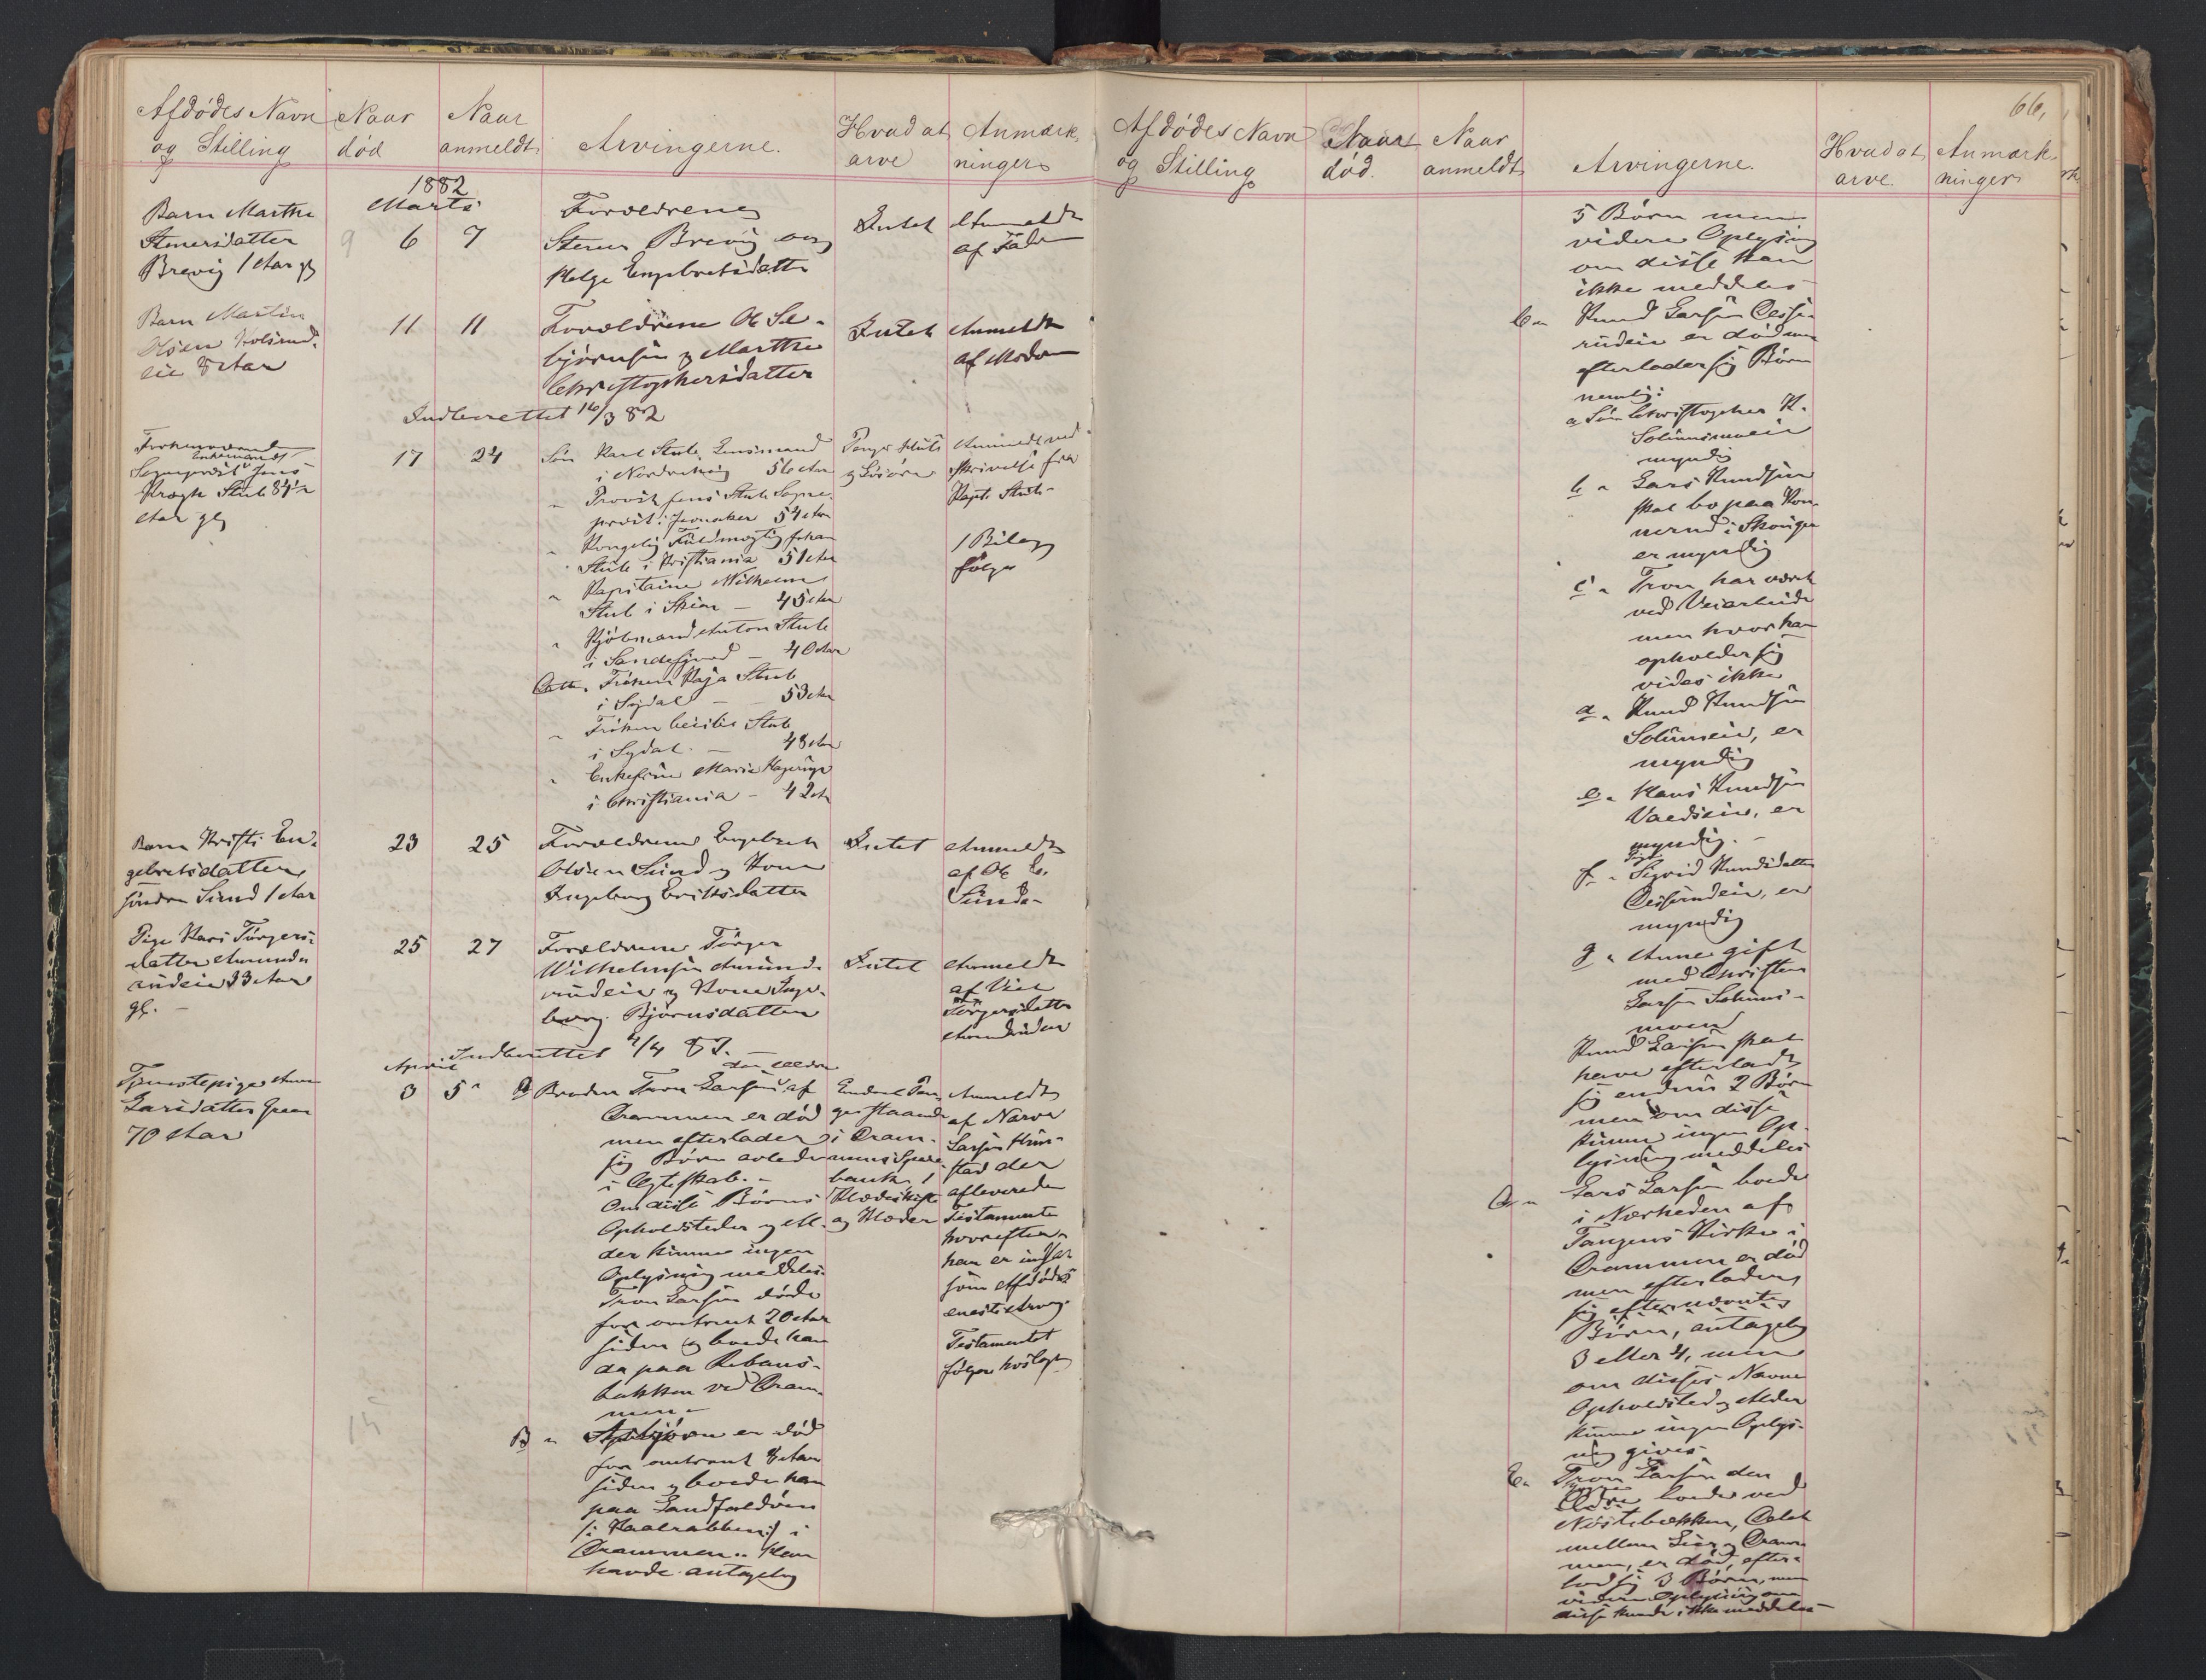 Afdødes Navn
og Stilling
Naar
død
Naar
anmeldt
Arvingerne.
Hvad at
arve
Anmærk-
ninger
1882
Marts
Barn Marthe
Stenersdatter
Brevig 1 Aar gl
6
7
Forældrene
Stener Brevig og
Helge Engebretsdatter
Intet
Anmeldt
af Fader
Barn Martin
Olsen
8 Aar
11
11
Forældrene Ole Se-
bjørnsen og Marthe
Christophersdatter
Intet
Anmeldt
af Moder
Indberettet 16/3 82
Enkemand
Sogneprest Jens
Krogh Stub 84½
Aar gl
17
24
Søn Karl Stub, Lensmand
i 56 Aar
" Provst Jens Stub Sogne-
prest i Jevnaker 54 Aar
" Kongelig Fuldmægtig Johan
Stub i Kristiania 51 Aar
" Kapitaine Wilhelm
Stub i Skien - 45 Aar
" Kjøbmand Anton Stub
i Sandefjord - 40 Aar
Datter Frøken Kaja Stub
i Sigdal - 53 Aar
" Frøken Cecilie Stub
i Sigdal - 48 Aar
" Enkefrue Marie
i Christiania - 42 Aar
Penge
og Løsøre
Anmeldt ved
skrivelse fra
Kapt. Stub-
1 Bilag
følger
Barn Kristi En-
gebretsdatter
søndre Sund 1 Aar
23
25
Forældrene Engebret
Olsen Sund og Kone
Ingeborg Eriksdatter
Intet
Anmeldt
af Ole E.
Sund-
Pige Kari Torgers-
datter Amunds
rudeie 33 Aar
gl. -
25
27
Forældrene Torger
Wilhelmsen Amunds
rudeie og Kone Inge-
borg Bjørnsdatter
Intet
Anmeldt
af
Torgersdatter
Indberettet 4/4 82.
April
Tjenestepige Anne
Larsdatter
70 Aar
3
5
den ældre
A Broder Tron Larsen af
Drammen er død
men efterlader
sig Børn avlede
i Egteskab. -
Om disse Børns
Opholdsteder og Al-
der kunne ingen
Oplysning meddeles.
Tron Larsen døde
for omtrent 20 Aar
siden og boede han
da paa
bakken ved Dram-
men -
B " Asbjørn er død
for omtrent 8 Aar
siden og boede han
paa Landfaldøen
i
Drammen.. Han
havde antagelig
Endel Pen-
ge staaende
i Dram-
mens Spare-
bank, 1
Klædeskiste
og Klæder
Anmeldt
af Narve
Larsen
der
afleverede
Testamente
hvorefter
han er indsat
som Afdødes
eneste Arving.
Testamentet
følger hoslagt
Afdødes Navn
og Stilling
Naar
død.
Naar
anmeldt
Arvingerne.
Hvad at
arve.
Anmærk-
ninger
66,
5 Børn men
videre Oplysning
om disse kan
ikke meddeles
C " Knud Larsen
er død men
efterlader sig Børn
nemlig:
a Søn Christopher K.
myndig
b " Lars Knudsen
skal bo paa
i
er myndig
c " Tron har været
ved Veiarbeide
men hvor han
opholder sig
vides ikke
d " Knud Knudsen
er
myndig
e " Hans Knudsen
er
myndig. -
f " Sigrid Knudsdatter
er
myndig
g " Anne gift
med Christen
Larsen
Knud Larsen skal
have efterladt
sig endnu 2 Børn
men om disse
kunne ingen Op-
lysning meddeles
D " Lars Larsen boede
i Nærheden af
Tangens Kirke i
Drammen er død
men efterlader
sig
Børn, antagelig
3 eller 4, men
om disses Navne
Opholdsted og Alder
kunne ingen Oplys-
ning gives
E " Tron Larsen den
yngre boede ved
Nøstebækken, Delet
mellem Lier og Dram-
men, er død, efter-
lod sig 3 Børn, men
videre Oplysning om
disse kunde ikke meddeles